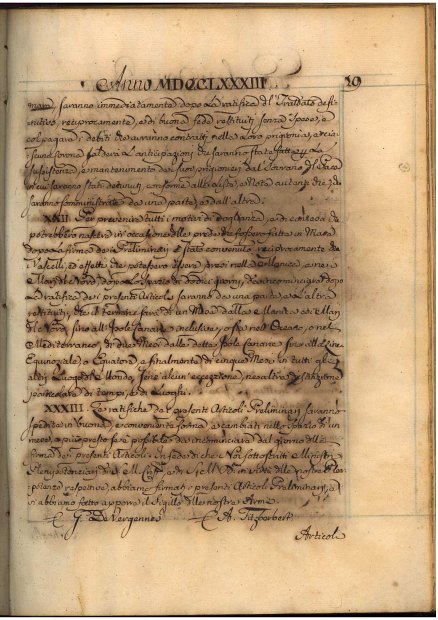 Anno MDCCLXXXIII 29
mare, saranno immediatamente dopo la ratifica del Trattato defi-
nitivo, reciprocamente, e di buona fede restituiti senza spese, e
col pagare i debiti che avranno contratti nella loro prigionia, e cia-
scuna Corona salderà l'anticipazioni che saranno state fatte per la
sussistenza, e mantenimento dei suoi prigionieri dal Sovrano del Paese
in cui saranno stati detenuti, conforme alle
da una parte, e dall'altra.
XXII Per prevenire tutti i motivi di doglianza, e di contesa che
potrebbero nascere in occasione delle prede che fossero fatte in Mare
dopo la firma dei Preliminari, è stato convenuto reciprocamente che
i Vascelli, ed effetti che potessero esser presi nella Manica, e nei
Mari del Nord, dopo lo spazio di dodici giorni, da cominciare dopo
la ratifica dei presenti Articoli saranno da una parte, e l'altra
restituiti; che il termine sarà di un Mese dalla Manica, e i Mari
del Nord, sino all'Isole Canarie inclusive, o sia nell'Oceano, o nel
Mediterraneo; di due Mesi dalle dette Isole Canarie sino alla Linea
Equinoziale, o Equatore, e finalmente di cinque Mesi in tutti gli
altri Luoghi del Mondo, senz'alcun'eccezzione, nè altra
particolare di tempi, e di Luoghi.
XXXIII Le ratifiche de presenti Articoli Preliminari saranno
spedite in buona, e conveniente forma, e cambiati nello spazio di un
mese, o più presto se sarà possibile, da cominciare dal giorno della
firma dei presenti Articoli. In fede di che Noi sottoscritti Ministri
Plenipotenziari di in virtù delle nostre Ple-
potenze respettive, abbiamo firmati i presenti Articoli Preliminari, e
vi abbiamo fatto apporre il Sigillo delle nostre Armi.
G. De Vergennes A. Fitzherbert
Articoli